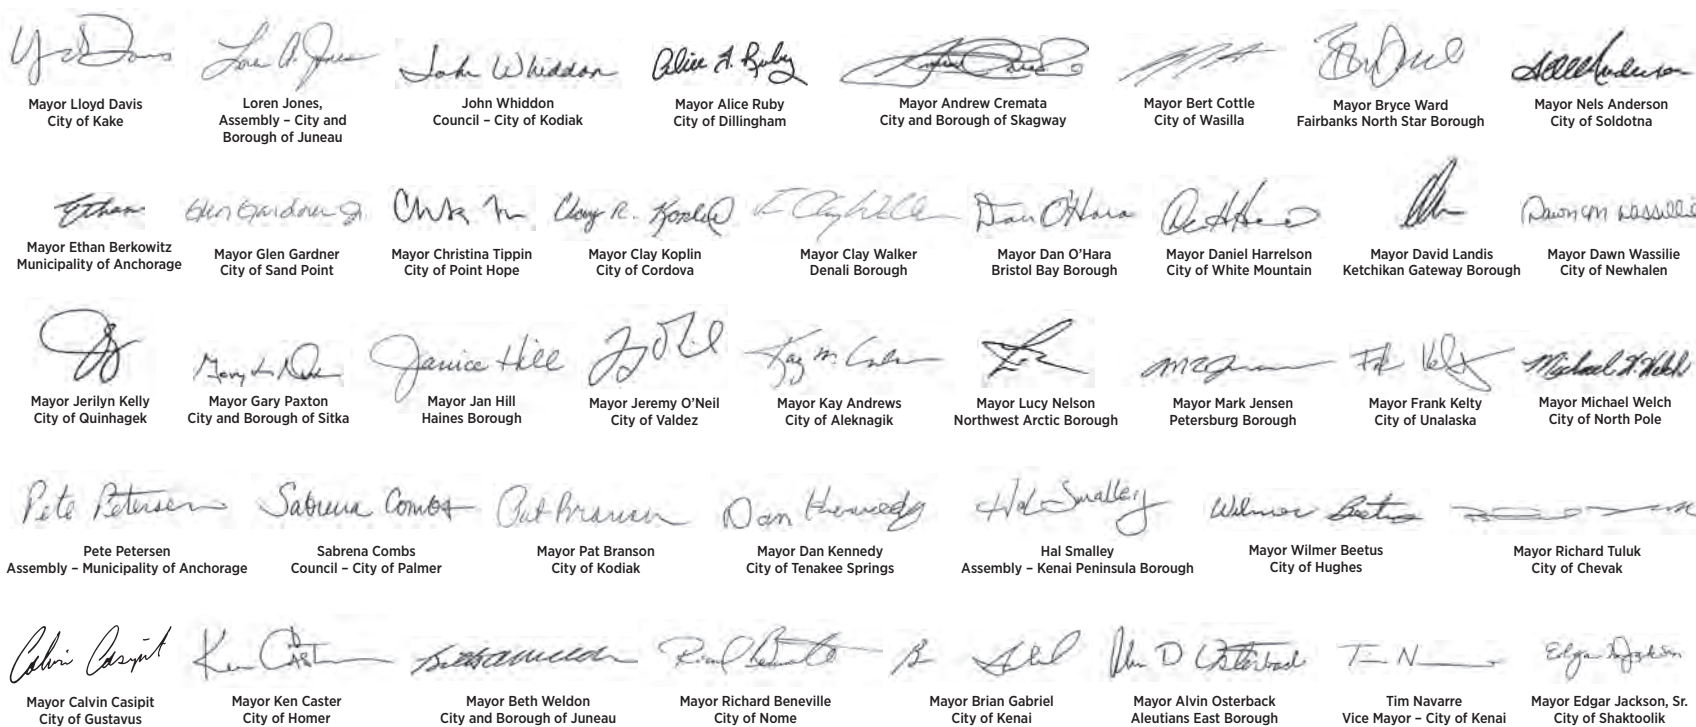 Mayor Lloyd Davis
City of Kake
Loren Jones,
Assembly – City and
Borough of Juneau
John Whiddon
John Whiddon
Council – City of Kodiak
Alice A. Ruby
Mayor Alice Ruby
City of Dillingham
Mayor Andrew Cremata
City and Borough of Skagway
Mayor Bert Cottle
City of Wasilla
Mayor Bryce Ward
Fairbanks North Star Borough
Mayor Nels Anderson
City of Soldotna
Ethan
Mayor Ethan Berkowitz
Municipality of Anchorage
Glen Gardner Jr
Mayor Glen Gardner
City of Sand Point
Mayor Christina Tippin
City of Point Hope
Clay R. Koplin
Mayor Clay Koplin
City of Cordova
Mayor Clay Walker
Denali Borough
Dan O'Hara
Mayor Dan O’Hara
Bristol Bay Borough
Mayor Daniel Harrelson
City of White Mountain
Mayor David Landis
Ketchikan Gateway Borough
Dawn M Wassillie
Mayor Dawn Wassilie
City of Newhalen
Mayor Jerilyn Kelly
City of Quinhagek
Mayor Gary Paxton
City and Borough of Sitka
Janice Hill
Mayor Jan Hill
Haines Borough
Mayor Jeremy O’Neil
City of Valdez
Mayor Kay Andrews
City of Aleknagik
Mayor Lucy Nelson
Northwest Arctic Borough
Mayor Mark Jensen
Petersburg Borough
Mayor Frank Kelty
City of Unalaska
Mayor Michael Welch
City of North Pole
Pete Petersen
Pete Petersen
Assembly – Municipality of Anchorage
Sabrena Combs
Sabrena Combs
Council – City of Palmer
Pat Branson
Mayor Pat Branson
City of Kodiak
Dan Kennedy
Mayor Dan Kennedy
City of Tenakee Springs
Hal Smalley
Hal Smalley
Assembly – Kenai Peninsula Borough
Wilmer Beetus
Mayor Wilmer Beetus
City of Hughes
Mayor Richard Tuluk
City of Chevak
Calvin Casipit
Mayor Calvin Casipit
City of Gustavus
Mayor Ken Caster
City of Homer
Mayor Beth Weldon
City and Borough of Juneau
Mayor Richard Beneville
City of Nome
Mayor Brian Gabriel
City of Kenai
Mayor Alvin Osterback
Aleutians East Borough
Tim Navarre
Vice Mayor – City of Kenai
Edgar Jackson
Mayor Edgar Jackson, Sr.
City of Shaktoolik